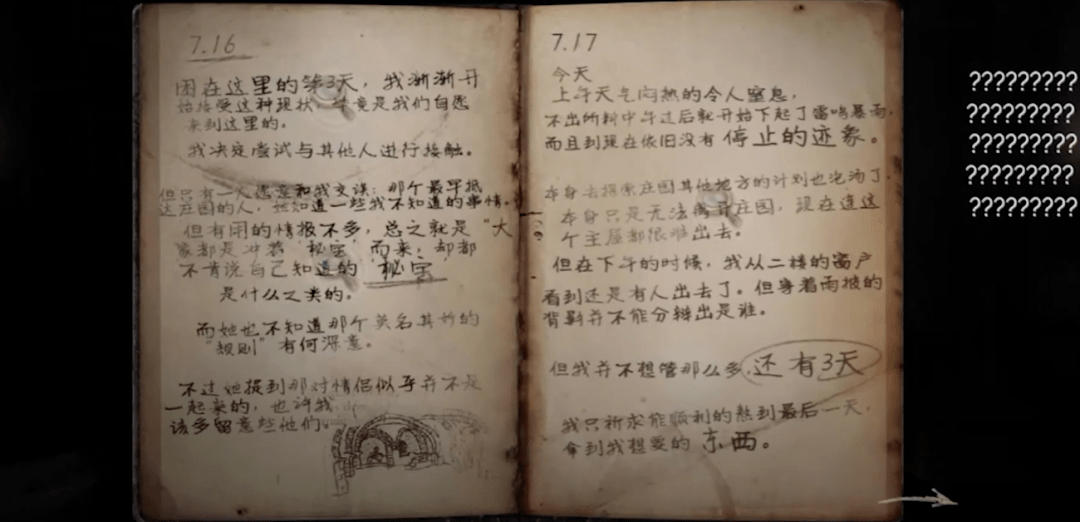 7.16
困在这里的第3天，我渐渐开
始接受这种现状，毕竟是我们自愿
来到这里的。
我决定尝试与其他人进行接触。
但只有一人愿意和我交谈：那个最早抵
达庄园的人，她知道一些我不知道的事情。
但有用的情报不多，总之就是“大
家都是冲着“秘宝”而来，却都
不肯说自己知道的“秘宝”
是什么之类的。
而她也不知道那个莫名其妙的
“规则”有何深意。
不过她提到那对情侣似乎并不是
一起来的，也许我
该多留意些他们
7.17
今天
上午天气闷热的令人窒息，
不出所料中午过后就开始下起了雷鸣暴雨，
而且到现在依旧没有停止的迹象。
本身去探索庄园其他地方的计划也泡汤了，
本身只是无法离开庄园，现在连这
个主屋都很难出去。
但在下午的时候，我从二楼的窗户
看到还是有人出去了。但穿着雨披的
背影并不能分辨出是谁。
但我并不想管那么多，还有3天
我只祈求能顺利的熬到最后一天，
拿到我想要的东西。
?????????
?????????
?????????
?????????
?????????